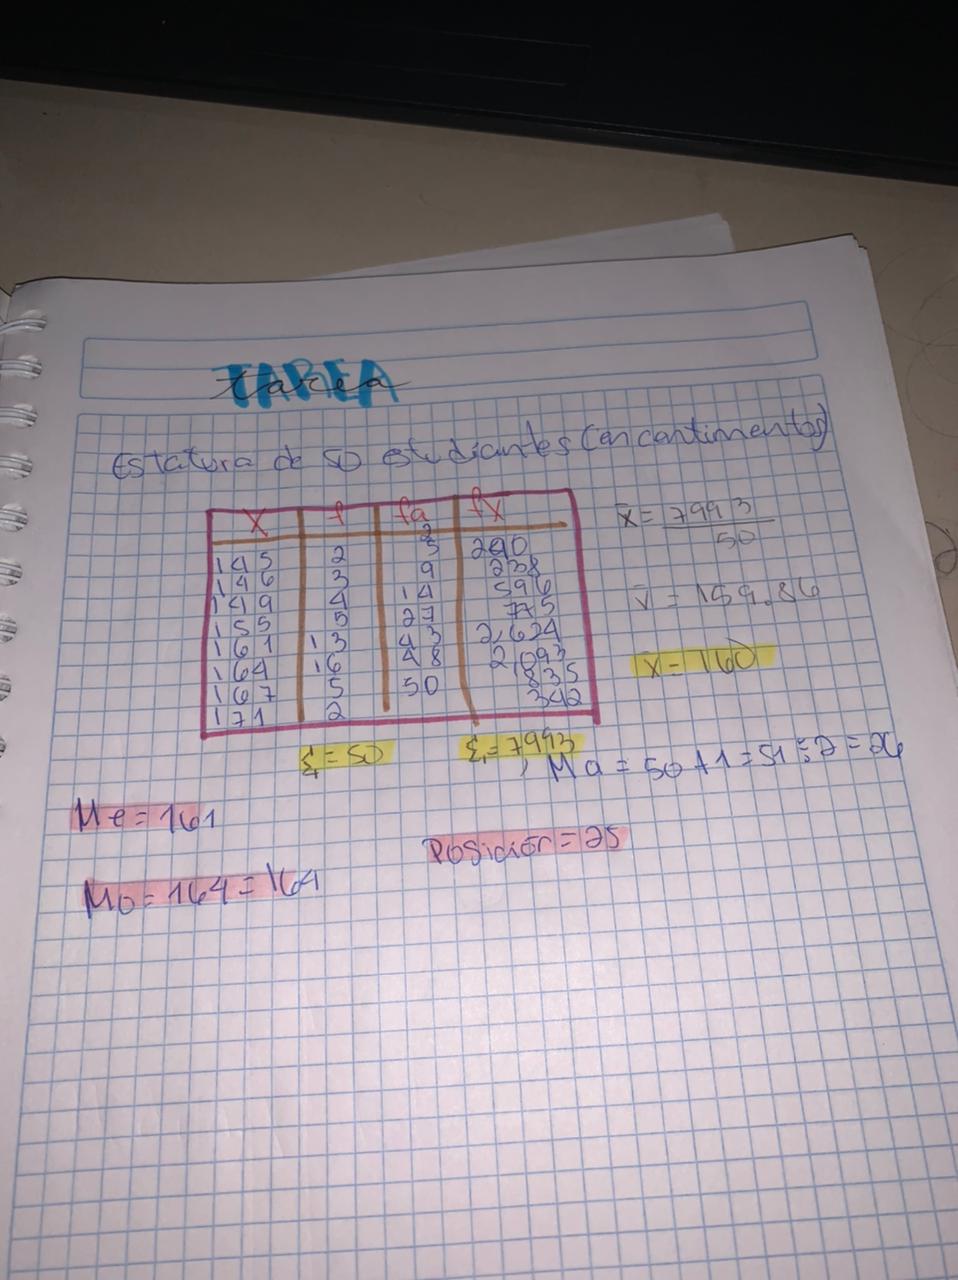 TAREA
tarea
Estatura de 50 estudiantes (en cantimentos)
X f fa fx
2
145 2 5 290
146 3 9 238
149 4 14 596
155 5 27 775
161 13 43 2,624
164 16 48 2,093
167 5 50 835
171 2 342
Σf=50 Σ,=7993
x̄=7993/50
x̄=159.86
x̄=160
Ma=50+1=51÷2=26
Me=161
Posición=25
Mo=164=164